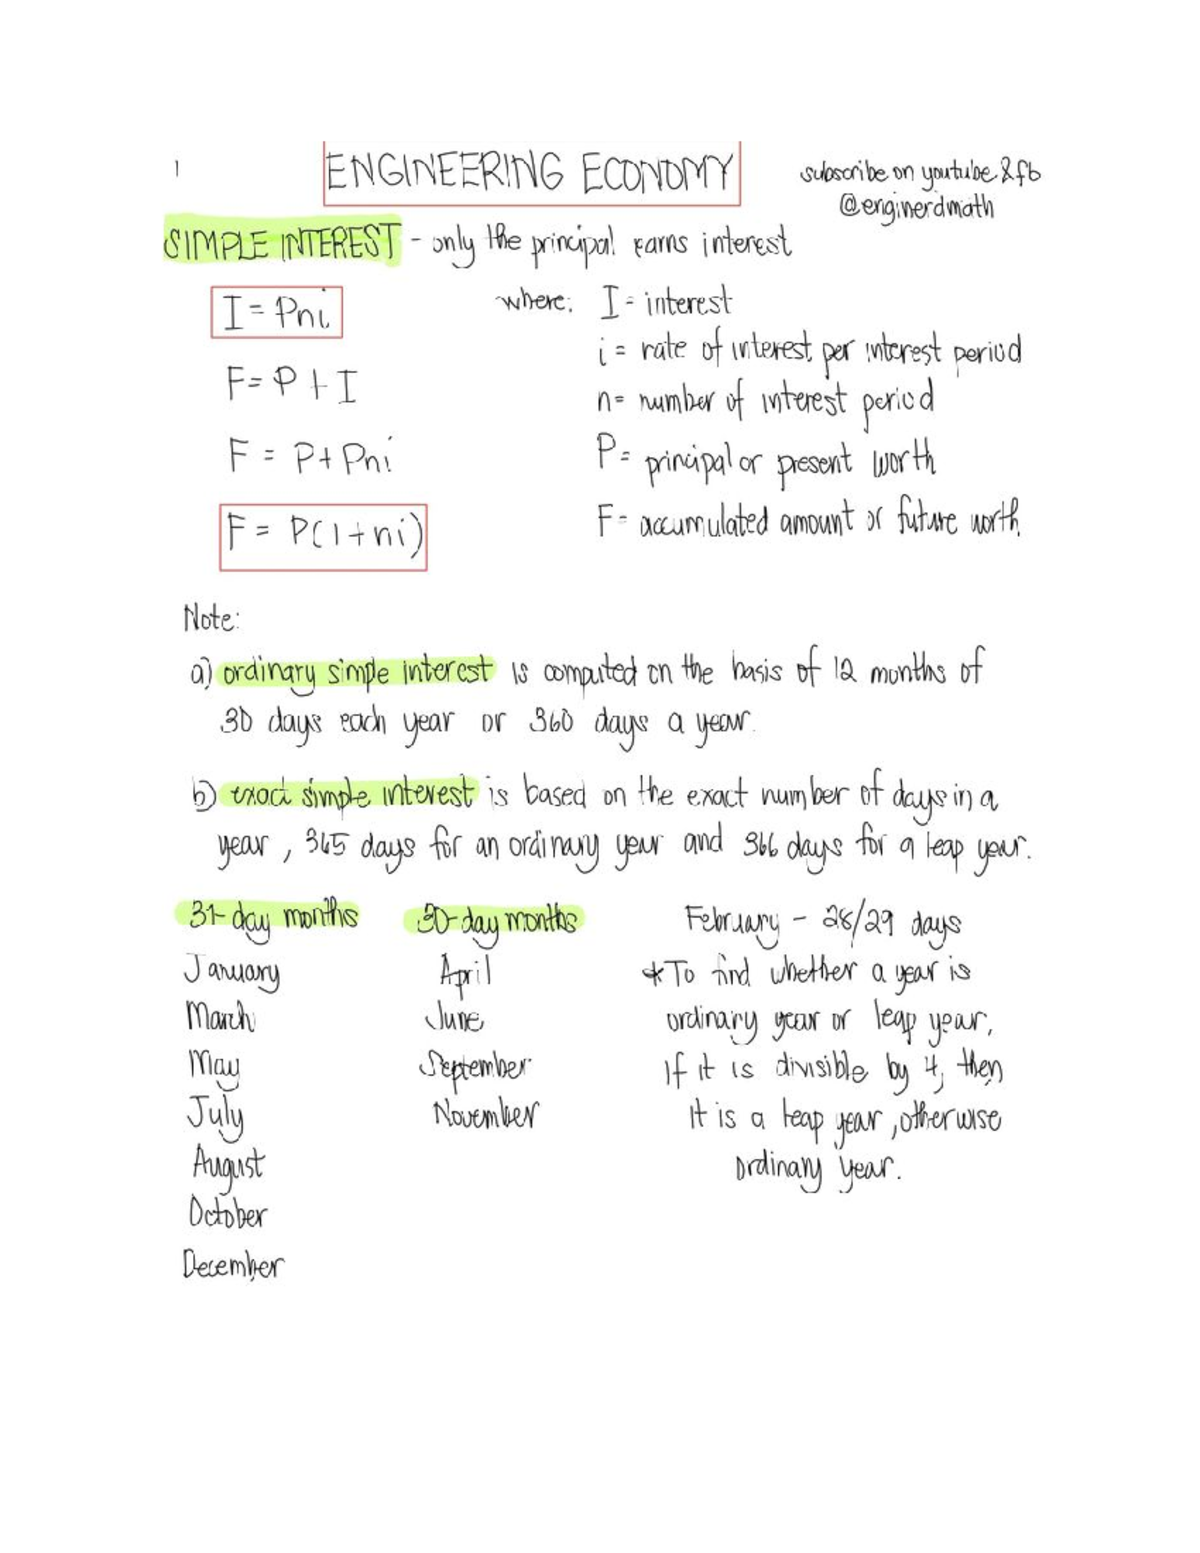 1
ENGINEERING ECONOMY
subscribe on youtube & fb
@enginerdmath
SIMPLE INTEREST - only the principal earns interest
I = Pni
F = P + I
F = P + Pni
F = P(1+ni)
where: I = interest
i = rate of interest per interest period
n = number of interest period
P = principal or present worth
F = accumulated amount or future worth
Note:
a) ordinary simple interest is computed on the basis of 12 months of
30 days each year or 360 days a year.
b) exact simple interest is based on the exact number of days in a
year, 365 days for an ordinary year and 366 days for a leap year.
31-day months
January
March
May
July
August
October
December
30-day months
April
June
September
November
February - 28/29 days
*To find whether a year is
ordinary year or leap year,
If it is divisible by 4, then
It is a leap year, otherwise
ordinary year.